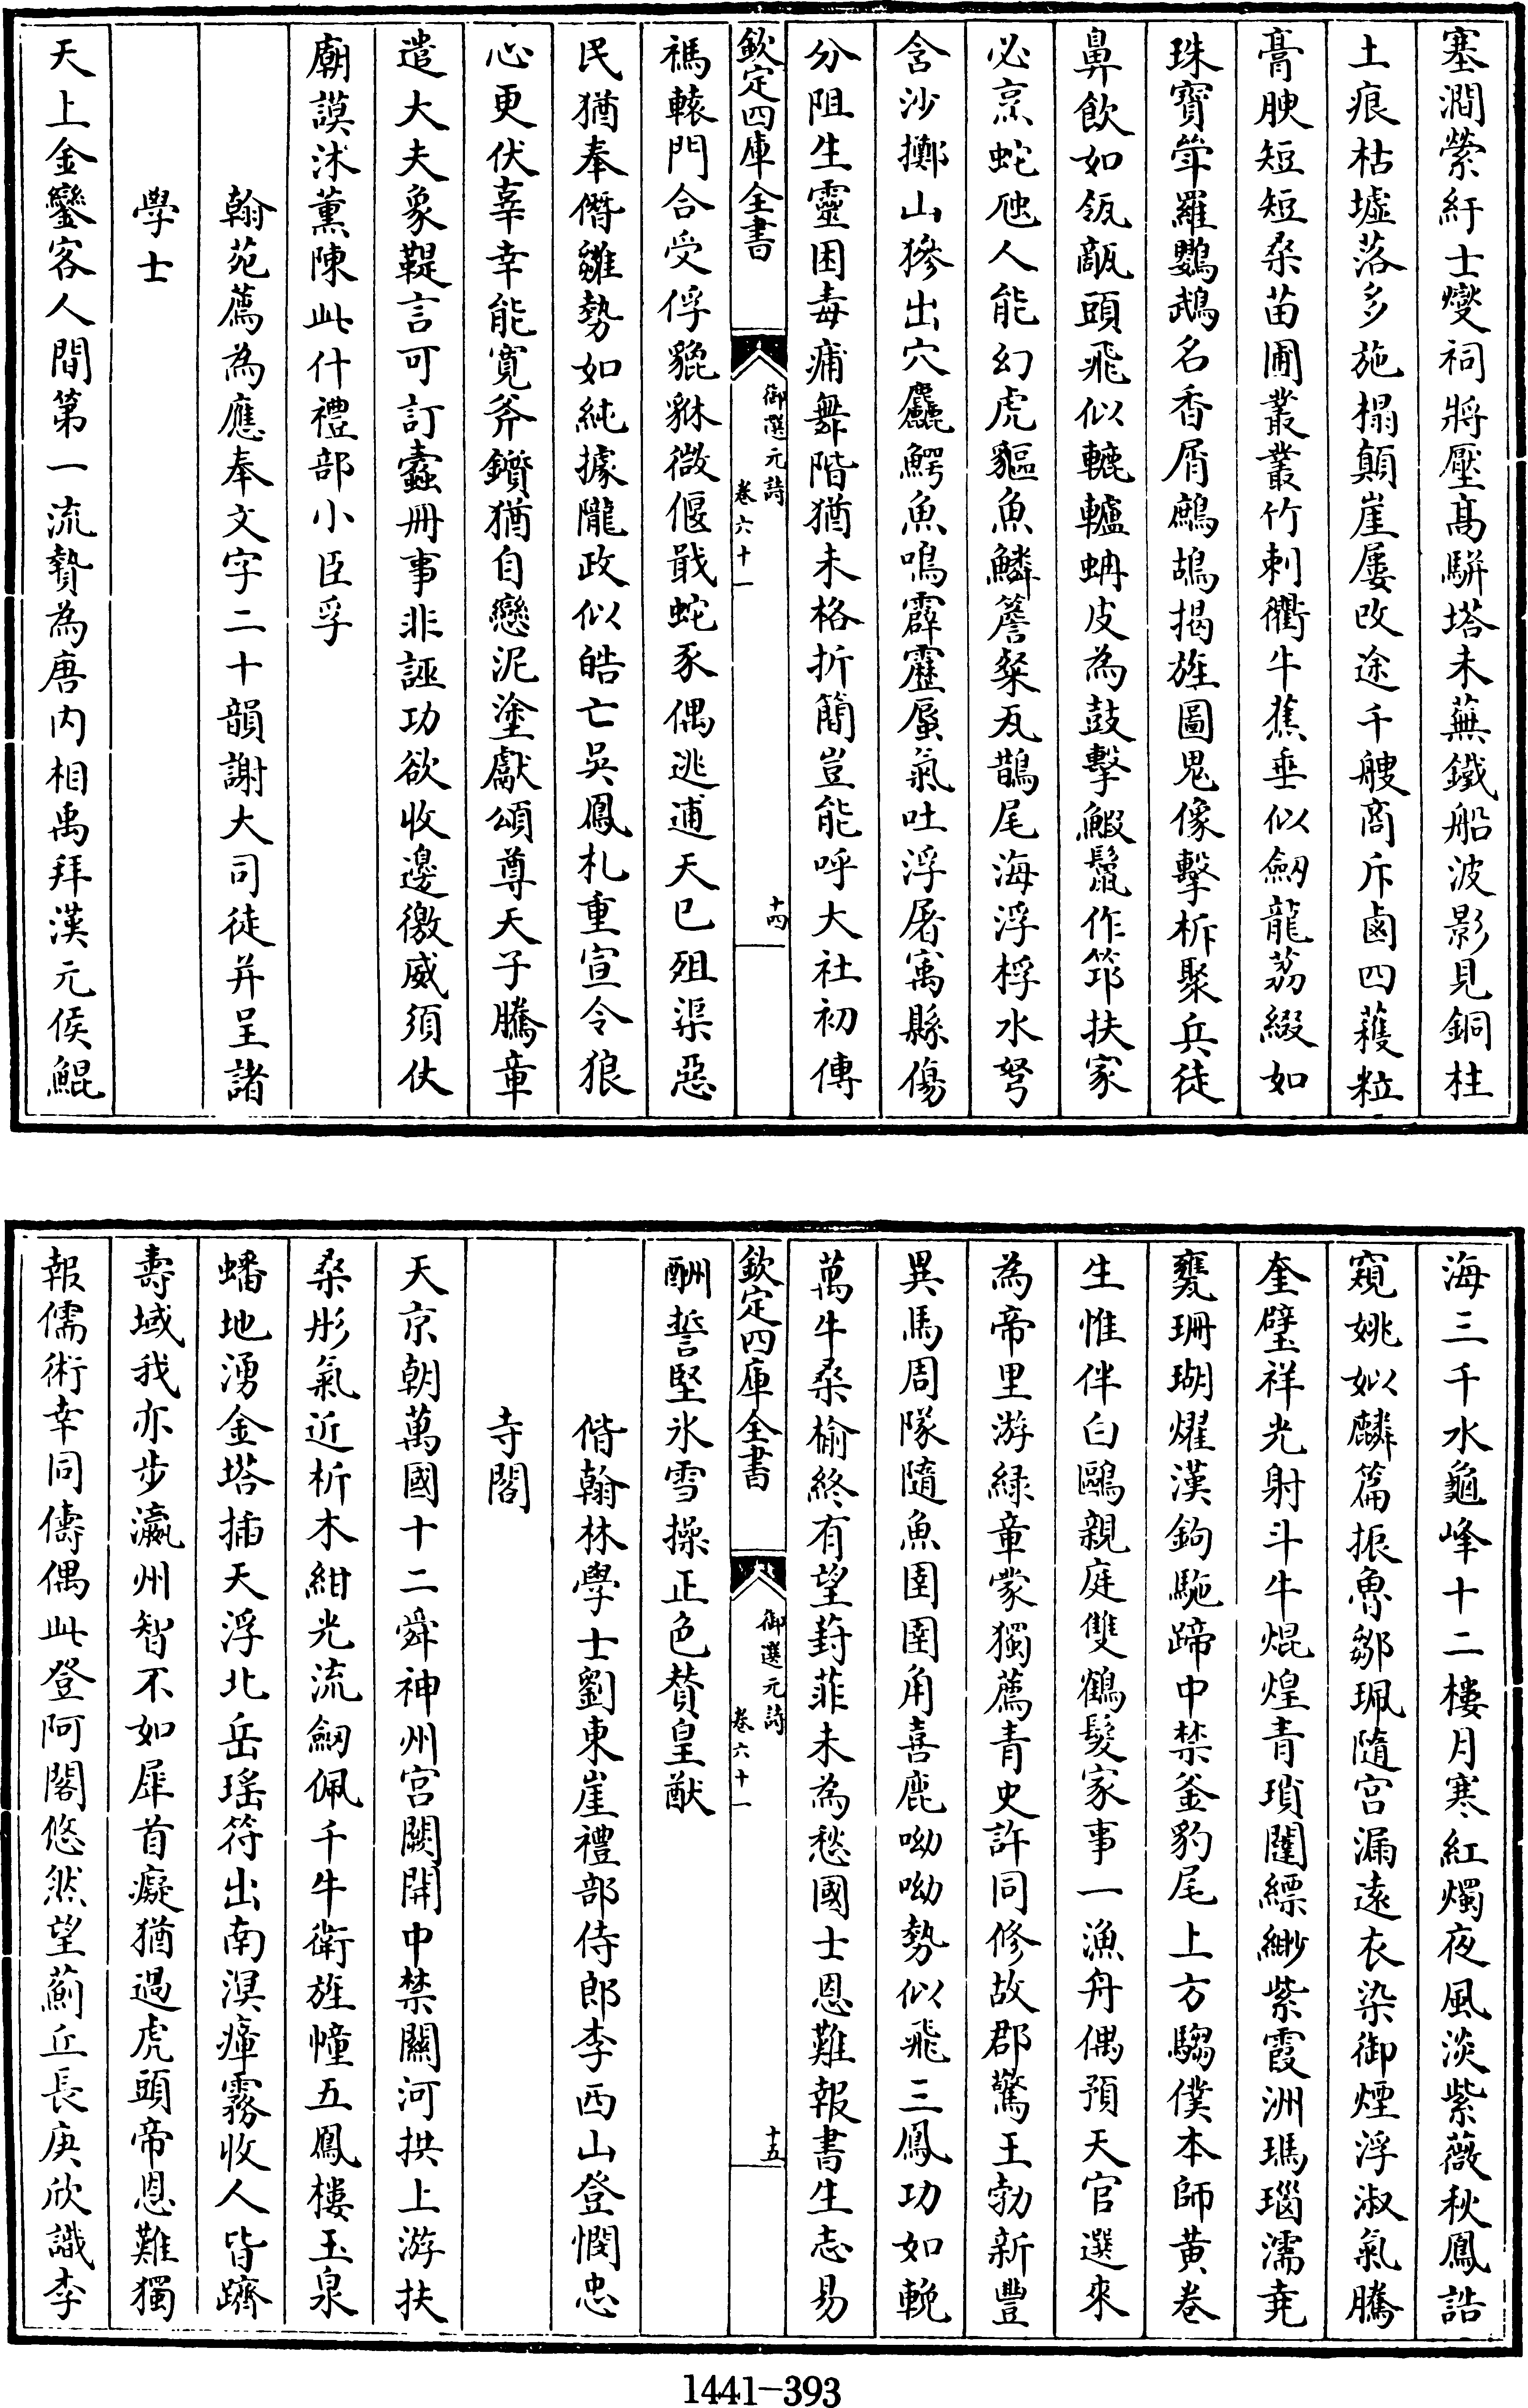 塞澗縈紆士燮祠將壓高駢塔未蕪鐵船波影見銅柱
土痕枯墟落多施榻顛崖屢改途千艘商斥鹵四穫粒
膏腴短短桑苗圃叢叢竹刺衢牛蕉垂似劒龍荔綴如
珠寳犖羅鸚鵡名香屑鷓鴣揭旌圖鬼像擊柝聚兵徒
鼻飲如瓴甋頭飛似轆轤蚺皮為鼓擊鰕鬚作筇扶家
必烹蛇虺人能幻虎軀魚鱗簷粲瓦鵲尾海浮桴水弩
含沙擲山獠出穴麤鰐魚鳴霹靂蜃氣吐浮屠寓縣傷
分阻生靈困毒痡舞階猶未格折簡豈能呼大社初傳
欽定四庫全書
御選元詩
卷六十一
十四
禡轅門合受俘貔貅微偃戢蛇豕偶逃逋天已殂渠惡
民猶奉僭雛勢如純據隴政似皓亡吳鳳札重宣令狼
心更伏辜幸能寛斧鑕猶自戀泥塗獻頌尊天子騰章
遣大夫象鞮言可訂蠧冊事非誣功欲收邊徼威須仗
廟謨沭薰陳此什禮部小臣孚
翰苑薦為應奉文字二十韻謝大司徒并呈諸
學士
天上金鑾客人間第一流贄為唐内相禹拜漢元侯鯤
海三千水龜峰十二樓月寒紅燭夜風淡紫薇秋鳳誥
窺姚姒麟篇振魯鄒珮隨宫漏遠衣染御煙浮淑氣騰
奎璧祥光射斗牛焜煌青瑣闥縹緲紫霞洲瑪瑙濡堯
甕珊瑚燿漢鉤駞蹄中禁釜豹尾上方騶僕本師黄卷
生惟伴白鷗親庭雙鶴髮家事一漁舟偶預天官選來
為帝里游緑章蒙獨薦青史許同修故郡驚王勃新豐
異馬周隊隨魚圉圉角喜鹿呦呦勢似飛三鳳功如輓
萬牛桑榆終有望葑菲未為愁國士恩難報書生志易
欽定四庫全書
御選元詩
卷六十一
十五
酬誓堅氷雪操正色贊皇猷
偕翰林學士劉東崖禮部侍郎李西山登憫忠
寺閣
天京朝萬國十二舜神州宫闕開中禁關河拱上游扶
桑彤氣近析木紺光流劒佩千牛衛旌幢五鳳樓玉泉
蟠地湧金塔插天浮北岳瑤符出南溟瘴霧收人皆躋
壽域我亦步瀛州智不如犀首癡猶過虎頭帝恩難獨
報儒術幸同儔偶此登阿閣悠然望薊丘長庚欣識李
1441-393